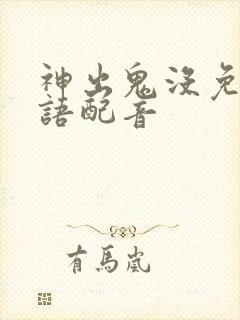 神出鬼沒免
語配音
有馬嵐